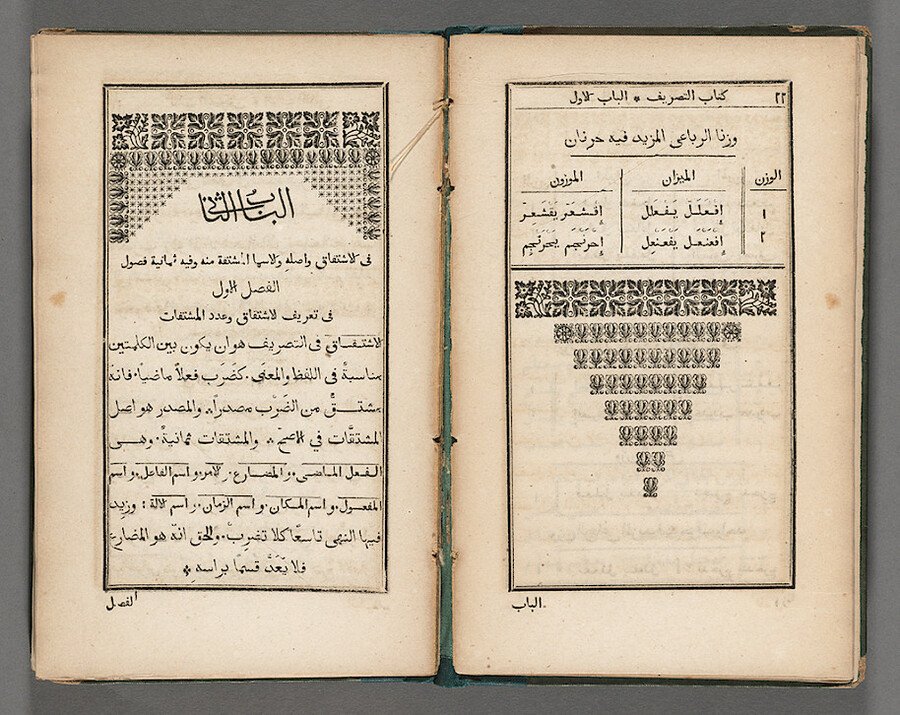 ٢٢ كتاب التصريف * الباب الاول
وزنا الرباعى المزيد فيه حرفان
الوزن الميزان الموزون
١ اِفعَلَلَّ يَفعَلِلُّ اِقشَعَرَّ يَقشَعِرُّ
٢ اِفعَنلَلَ يَفعَنلِلُ اِحرَنْجَمَ يَحرَنْجِمُ
الباب
الباب الثانى
فى الاشتقاق واصلهِ والاسما المشتقة منه وفيه ثمانية فصول
الفصل الاول
فى تعريف الاشتقاق وعدد المشتقات
الاشتقاق فى التصريف هو ان يكون بين الكلمتين
مناسبةٌ فى اللفظ والمعنى. كضَرَب فعلاً ماضياً. فانهُ
مشتقٌّ من الضَّرْب مصدراً. والمصدر هو اصل
المشتقَّات في الاصحّ. والمشتقات ثمانيةٌ. وهى
الفعل الماضى. والمضارع. والامر واسم الفاعل. واسم
المفعول. واسم المكان. واسم الزمان. واسم الالة : وزيد
فيها النهى تاسعًا كلا تضرِبْ. والحق انهُ هو المضارع
فلا يُعَدّ قسمًا براسهِ *
الفصل